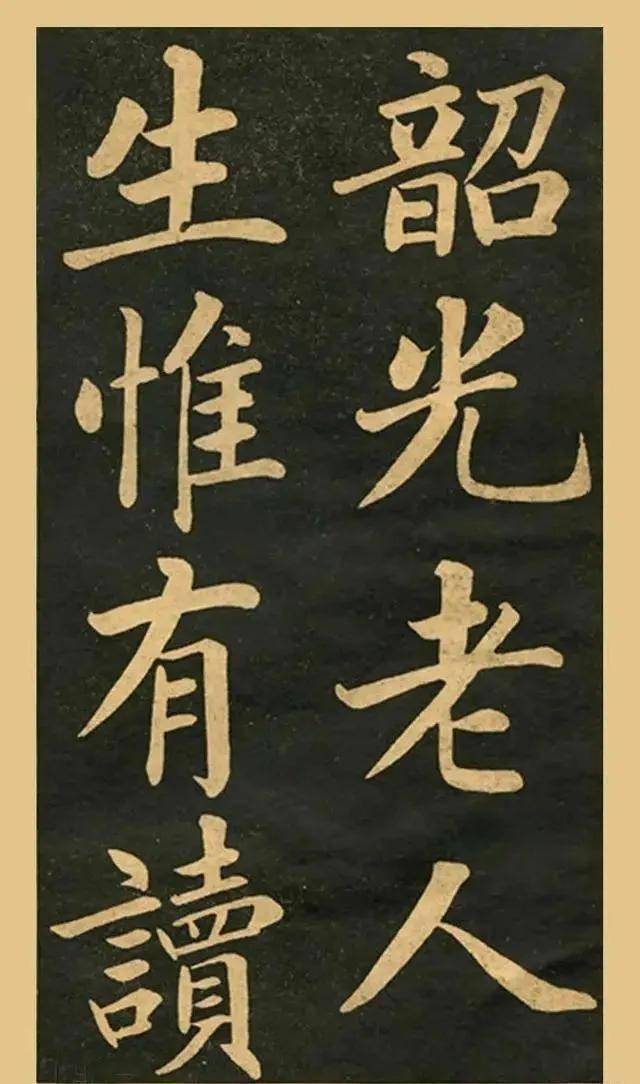 韶光老人
生惟有讀